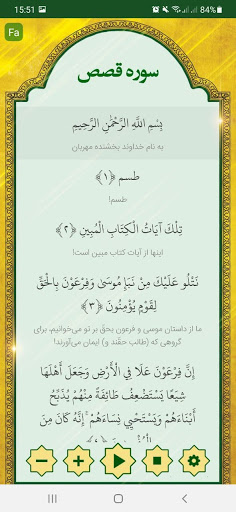 15:51
84%
Fa
سوره قصص
بِسْمِ اللَّهِ الرَّحْمَٰنِ الرَّحِيمِ
به نام خداوند بخشنده مهربان
طسم ﴿١﴾
طسم!
تِلْكَ آيَاتُ الْكِتَابِ الْمُبِينِ ﴿٢﴾
اینها از آیات کتاب مبین است!
نَتْلُو عَلَيْكَ مِنْ نَبَإِ مُوسَىٰ وَفِرْعَوْنَ بِالْحَقِّ
لِقَوْمٍ يُؤْمِنُونَ ﴿٣﴾
ما از داستان موسی و فرعون بحق بر تو می‌خوانیم، برای
گروهی که (طالب حقند و) ایمان می‌آورند!
إِنَّ فِرْعَوْنَ عَلَا فِي الْأَرْضِ وَجَعَلَ أَهْلَهَا
شِيَعًا يَسْتَضْعِفُ طَائِفَةً مِنْهُمْ يُذَبِّحُ
أَبْنَاءَهُمْ وَيَسْتَحْيِي نِسَاءَهُمْ ۚ إِنَّهُ كَانَ مِنَ